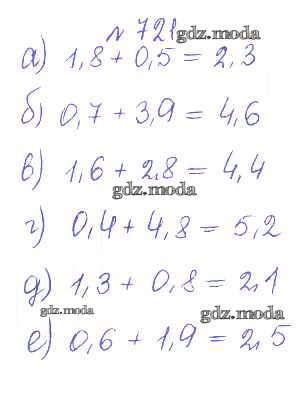 № 721 gdz.moda
а) 1,8 + 0,5 = 2,3
б) 0,7 + 3,9 = 4,6
в) 1,6 + 2,8 = 4,4
gdz.moda
г) 0,4 + 4,8 = 5,2
д) 1,3 + 0,8 = 2,1
gdz.moda gdz.moda
е) 0,6 + 1,9 = 2,5